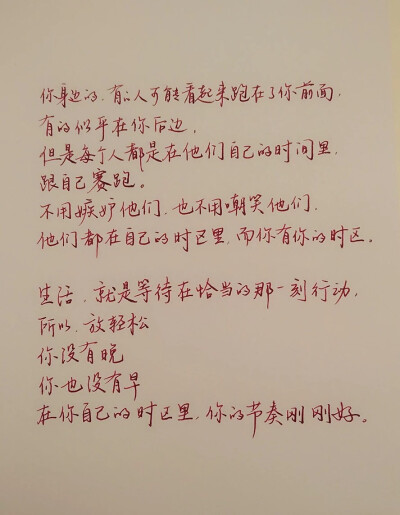 你身边的，有的人可能看起来跑在了你前面，
有的似乎在你后边，
但是每个人都是在他们自己的时间里，
跟自己赛跑。
不用嫉妒他们，也不用嘲笑他们，
他们都在自己的时区里，而你有你的时区。
生活，就是等待在恰当的那一刻行动，
所以，放轻松
你没有晚
你也没有早
在你自己的时区里，你的节奏刚刚好。